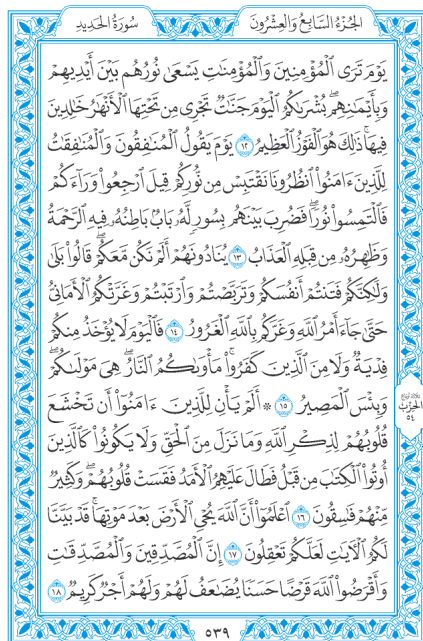 الجُزْءُ السَّابِعُ وَالعِشْرُونَ
سُورَةُ الحَدِيدِ
يَوْمَ تَرَى ٱلْمُؤْمِنِينَ وَٱلْمُؤْمِنَٰتِ يَسْعَىٰ نُورُهُم بَيْنَ أَيْدِيهِمْ
وَبِأَيْمَٰنِهِمۖ بُشْرَىٰكُمُ ٱلْيَوْمَ جَنَّٰتٌ تَجْرِى مِن تَحْتِهَا ٱلْأَنْهَٰرُ خَٰلِدِينَ
فِيهَاۚ ذَٰلِكَ هُوَ ٱلْفَوْزُ ٱلْعَظِيمُ ١٢ يَوْمَ يَقُولُ ٱلْمُنَٰفِقُونَ وَٱلْمُنَٰفِقَٰتُ
لِلَّذِينَ ءَامَنُوا۟ ٱنظُرُونَا نَقْتَبِسْ مِن نُّورِكُمْ قِيلَ ٱرْجِعُوا۟ وَرَآءَكُمْ
فَٱلْتَمِسُوا۟ نُورًاۖ فَضُرِبَ بَيْنَهُم بِسُورٍ لَّهُۥ بَابٌۢ بَاطِنُهُۥ فِيهِ ٱلرَّحْمَةُ
وَظَٰهِرُهُۥ مِن قِبَلِهِ ٱلْعَذَابُ ١٣ يُنَادُونَهُمْ أَلَمْ نَكُن مَّعَكُمْۖ قَالُوا۟ بَلَىٰ
وَلَٰكِنَّكُمْ فَتَنتُمْ أَنفُسَكُمْ وَتَرَبَّصْتُمْ وَٱرْتَبْتُمْ وَغَرَّتْكُمُ ٱلْأَمَانِىُّ
حَتَّىٰ جَآءَ أَمْرُ ٱللَّهِ وَغَرَّكُم بِٱللَّهِ ٱلْغَرُورُ ١٤ فَٱلْيَوْمَ لَا يُؤْخَذُ مِنكُمْ
فِدْيَةٌ وَلَا مِنَ ٱلَّذِينَ كَفَرُوا۟ۚ مَأْوَىٰكُمُ ٱلنَّارُۖ هِىَ مَوْلَىٰكُمْۖ
وَبِئْسَ ٱلْمَصِيرُ ١٥ ۞ أَلَمْ يَأْنِ لِلَّذِينَ ءَامَنُوٓا۟ أَن تَخْشَعَ
قُلُوبُهُمْ لِذِكْرِ ٱللَّهِ وَمَا نَزَلَ مِنَ ٱلْحَقِّ وَلَا يَكُونُوا۟ كَٱلَّذِينَ
أُوتُوا۟ ٱلْكِتَٰبَ مِن قَبْلُ فَطَالَ عَلَيْهِمُ ٱلْأَمَدُ فَقَسَتْ قُلُوبُهُمْۖ وَكَثِيرٌ
مِّنْهُمْ فَٰسِقُونَ ١٦ ٱعْلَمُوٓا۟ أَنَّ ٱللَّهَ يُحْىِ ٱلْأَرْضَ بَعْدَ مَوْتِهَاۚ قَدْ بَيَّنَّا
لَكُمُ ٱلْءَايَٰتِ لَعَلَّكُمْ تَعْقِلُونَ ١٧ إِنَّ ٱلْمُصَّدِّقِينَ وَٱلْمُصَّدِّقَٰتِ
وَأَقْرَضُوا۟ ٱللَّهَ قَرْضًا حَسَنًا يُضَٰعَفُ لَهُمْ وَلَهُمْ أَجْرٌ كَرِيمٌ ١٨
الحِزْبُ
٥٤
٥٣٩